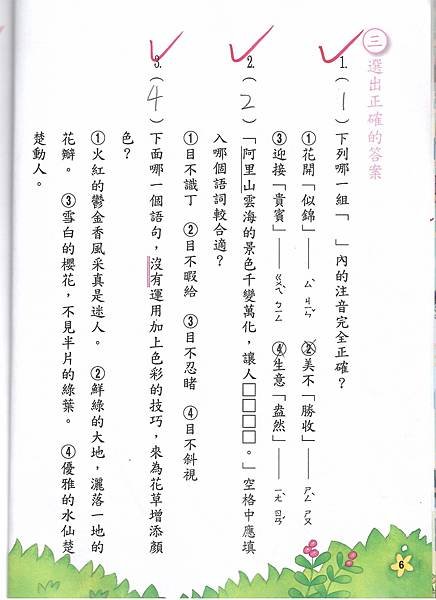 三 選出正確的答案
1.( 1 )下列哪一組「 」內的注音完全正確?
①花開「似錦」——ㄙˋ ㄐㄧㄣˇ ②美不「勝收」—— ㄕㄡ
③迎接「貴賓」——ㄍㄨㄟˋ ④生意「盎然」——
2.( 2 )「阿里山雲海的景色千變萬化,讓人□□□□。」空格中應填
入哪個語詞較合適?
①目不識丁 ②目不暇給 ③目不忍睹 ④目不斜視
3.( 4 )下面哪一個語句,沒有運用加上色彩的技巧,來為花草增添顏
色?
①火紅的鬱金香風采真是迷人。 ②鮮綠的大地,灑落一地的
花瓣。 ③雪白的櫻花,不見半片的綠葉。 ④優雅的水仙楚
楚動人。
6